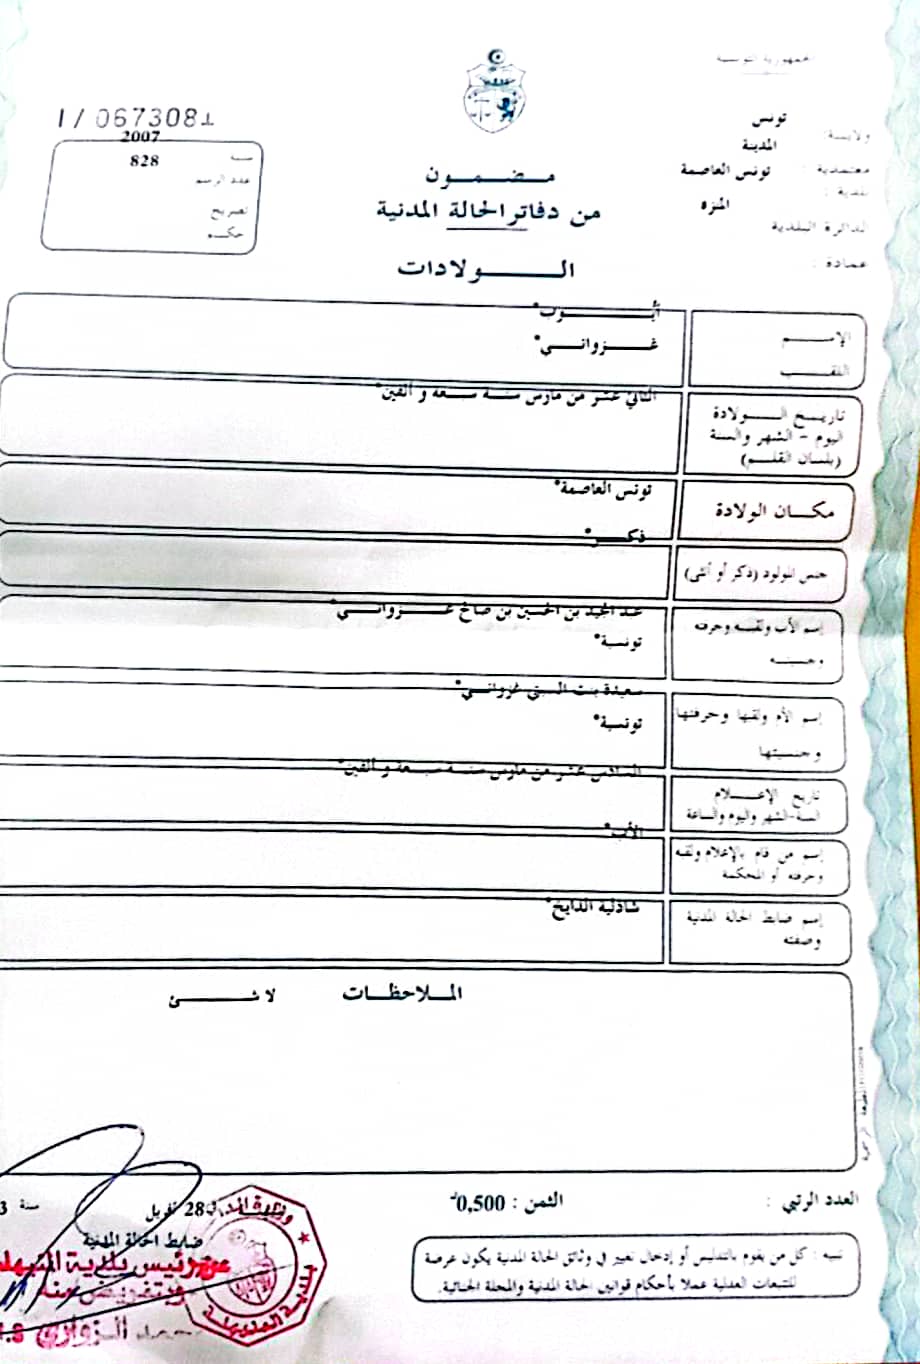 الجمهورية التونسية
I / 067308
ولاية: تونس
معتمدية: المدينة
بلدية: تونس العاصمة
الدائرة البلدية المنزه
عمادة:
سنة 2007
عدد الرسم 828
تصريح
حكم
مضمون
من دفاتر الحالة المدنية
الولادات
الإسم أيوب*
اللقب غزواني*
تاريخ الولادة
اليوم - الشهر والسنة
(بلسان القلم)
الثاني عشر من مارس سنة سبعة و ألفين*
مكان الولادة
تونس العاصمة*
جنس المولود (ذكر أو أنثى)
ذكر*
إسم الأب ولقبه وحرفته
وجنسيته
عبد المجيد بن الحسين بن صالح غزواني*
تونسية*
إسم الأم ولقبها وحرفتها
وجنسيتها
سعيدة بنت غزواني*
تونسية*
تاريخ الإعلام
السنة-الشهر واليوم والساعة
السادس عشر من مارس سنة سبعة و ألفين*
إسم من قام بالإعلام ولقبه
وحرفته أو المحكمة
الأب*
إسم ضابط الحالة المدنية
وصفته
شاذلية الذايخ*
الملاحظات لا شئ
العدد الرتبي :
الثمن : 0,500د
28 أفريل سنة 3
ضابط الحالة المدنية
عن رئيس بلدية
وبتفويض منه
الزواري
تنبيه : كل من يقوم بالتدليس أو إدخال تغيير في وثائق الحالة المدنية يكون عرضة
للتتبعات العدلية عملا بأحكام قوانين الحالة المدنية والمجلة الجنائية.